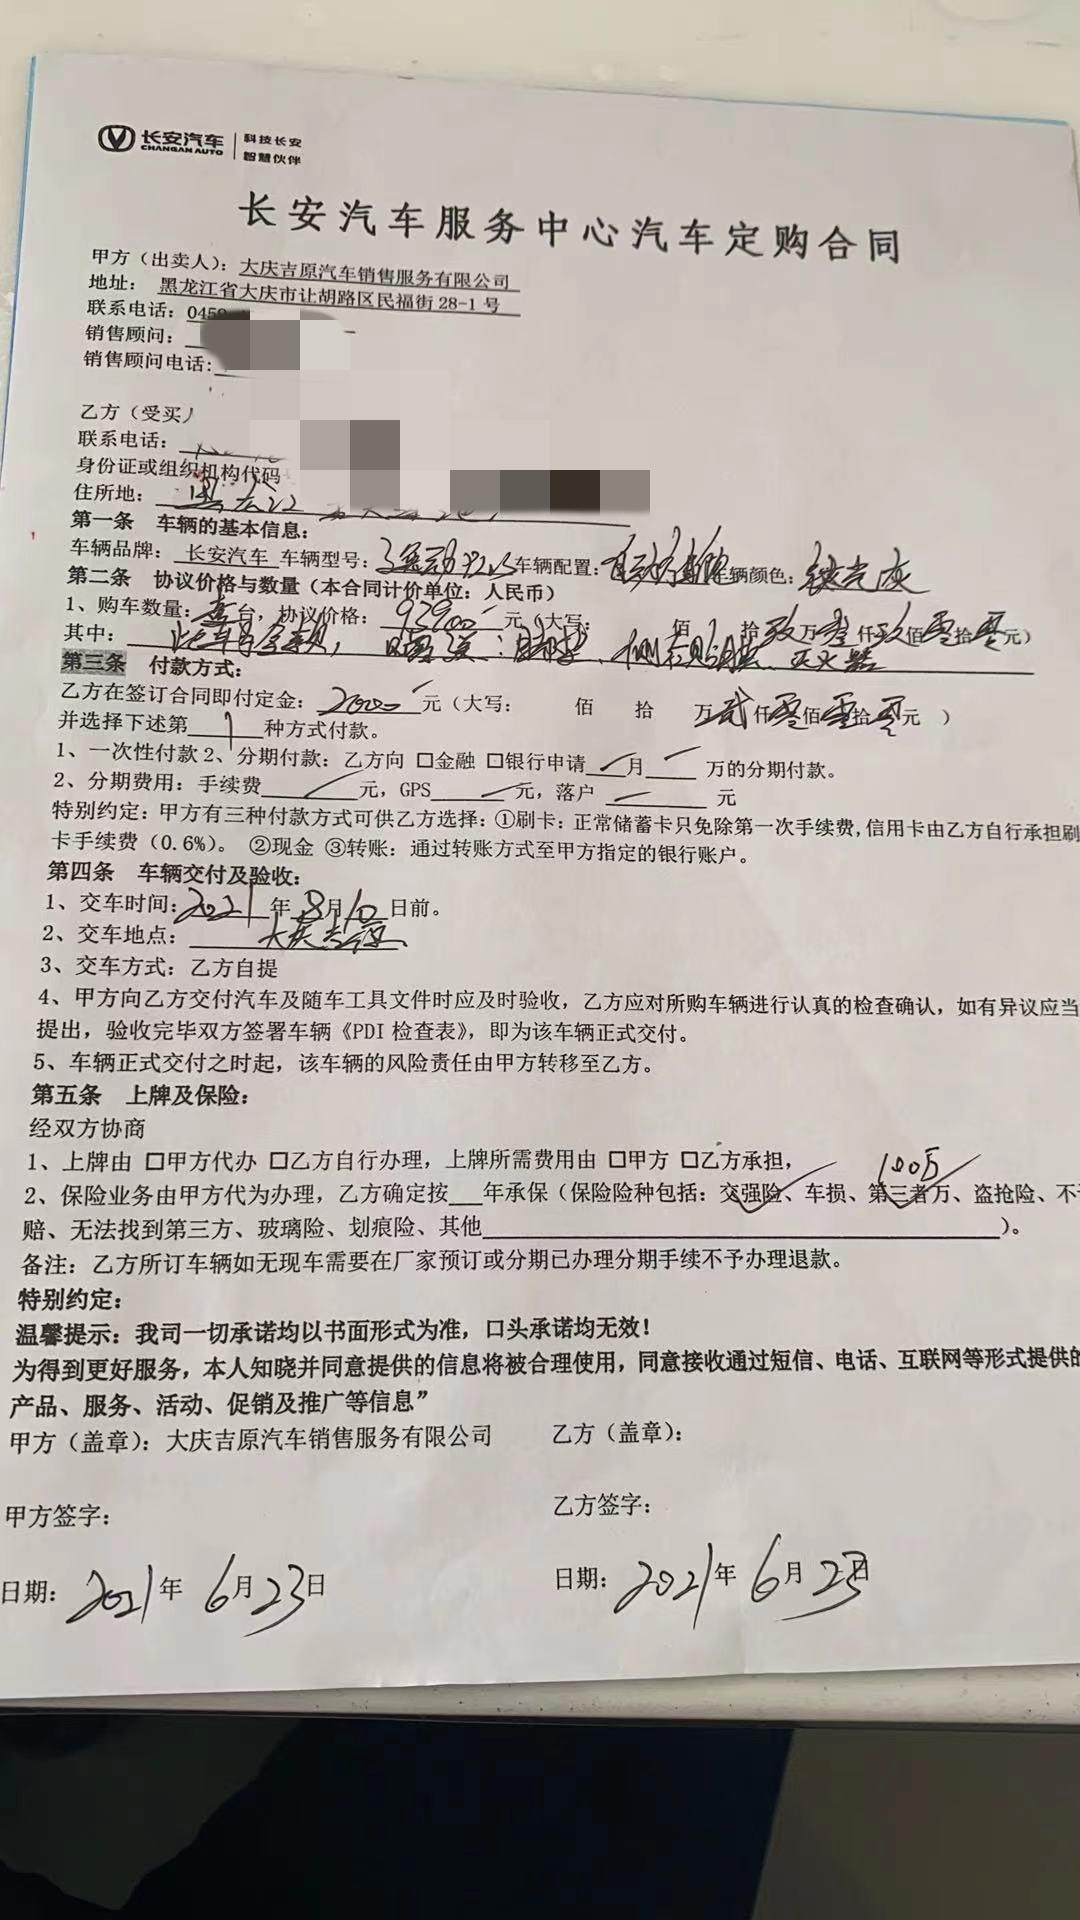 长安汽车 科技长安
CHANGAN AUTO 智慧伙伴
长安汽车服务中心汽车定购合同
甲方（出卖人）：大庆吉原汽车销售服务有限公司
地址：黑龙江省大庆市让胡路区民福街 28-1 号
联系电话：045
销售顾问：
销售顾问电话：
乙方（受买
联系电话：
身份证或组织机构代码
住所地：
第一条 车辆的基本信息：
车辆品牌：长安汽车 车辆型号： 车辆配置： 车辆颜色： 灰
第二条 协议价格与数量（本合同计价单位：人民币）
1、购车数量：壹台，协议价格：93900元（大写： 佰 拾玖万叁仟玖佰零拾零元）
其中： 灭火器
第三条 付款方式：
乙方在签订合同即付定金：2000元（大写： 佰 拾 万贰仟零佰零拾零元 ）
并选择下述第 1 种方式付款。
1、一次性付款 2、分期付款：乙方向 □金融 □银行申请 月 万的分期付款。
2、分期费用：手续费 元，GPS 元，落户 元
特别约定：甲方有三种付款方式可供乙方选择：①刷卡：正常储蓄卡只免除第一次手续费，信用卡由乙方自行承担刷
卡手续费（0.6%）。 ②现金 ③转账：通过转账方式至甲方指定的银行账户。
第四条 车辆交付及验收：
1、交车时间：2021年8月10日前。
2、交车地点：大庆吉原
3、交车方式：乙方自提
4、甲方向乙方交付汽车及随车工具文件时应及时验收，乙方应对所购车辆进行认真的检查确认，如有异议应当
提出，验收完毕双方签署车辆《PDI 检查表》，即为该车辆正式交付。
5、车辆正式交付之时起，该车辆的风险责任由甲方转移至乙方。
第五条 上牌及保险：
经双方协商
1、上牌由 □甲方代办 □乙方自行办理，上牌所需费用由 □甲方 □乙方承担，
100万
2、保险业务由甲方代为办理，乙方确定按 年承保（保险险种包括：交强险、车损、第三者万、盗抢险、不
赔、无法找到第三方、玻璃险、划痕险、其他 ）。
备注：乙方所订车辆如无现车需要在厂家预订或分期已办理分期手续不予办理退款。
特别约定：
温馨提示：我司一切承诺均以书面形式为准，口头承诺均无效！
为得到更好服务，本人知晓并同意提供的信息将被合理使用，同意接收通过短信、电话、互联网等形式提供的
产品、服务、活动、促销及推广等信息”
甲方（盖章）：大庆吉原汽车销售服务有限公司 乙方（盖章）：
甲方签字： 乙方签字：
日期：2021年6月23日 日期：2021年6月23日